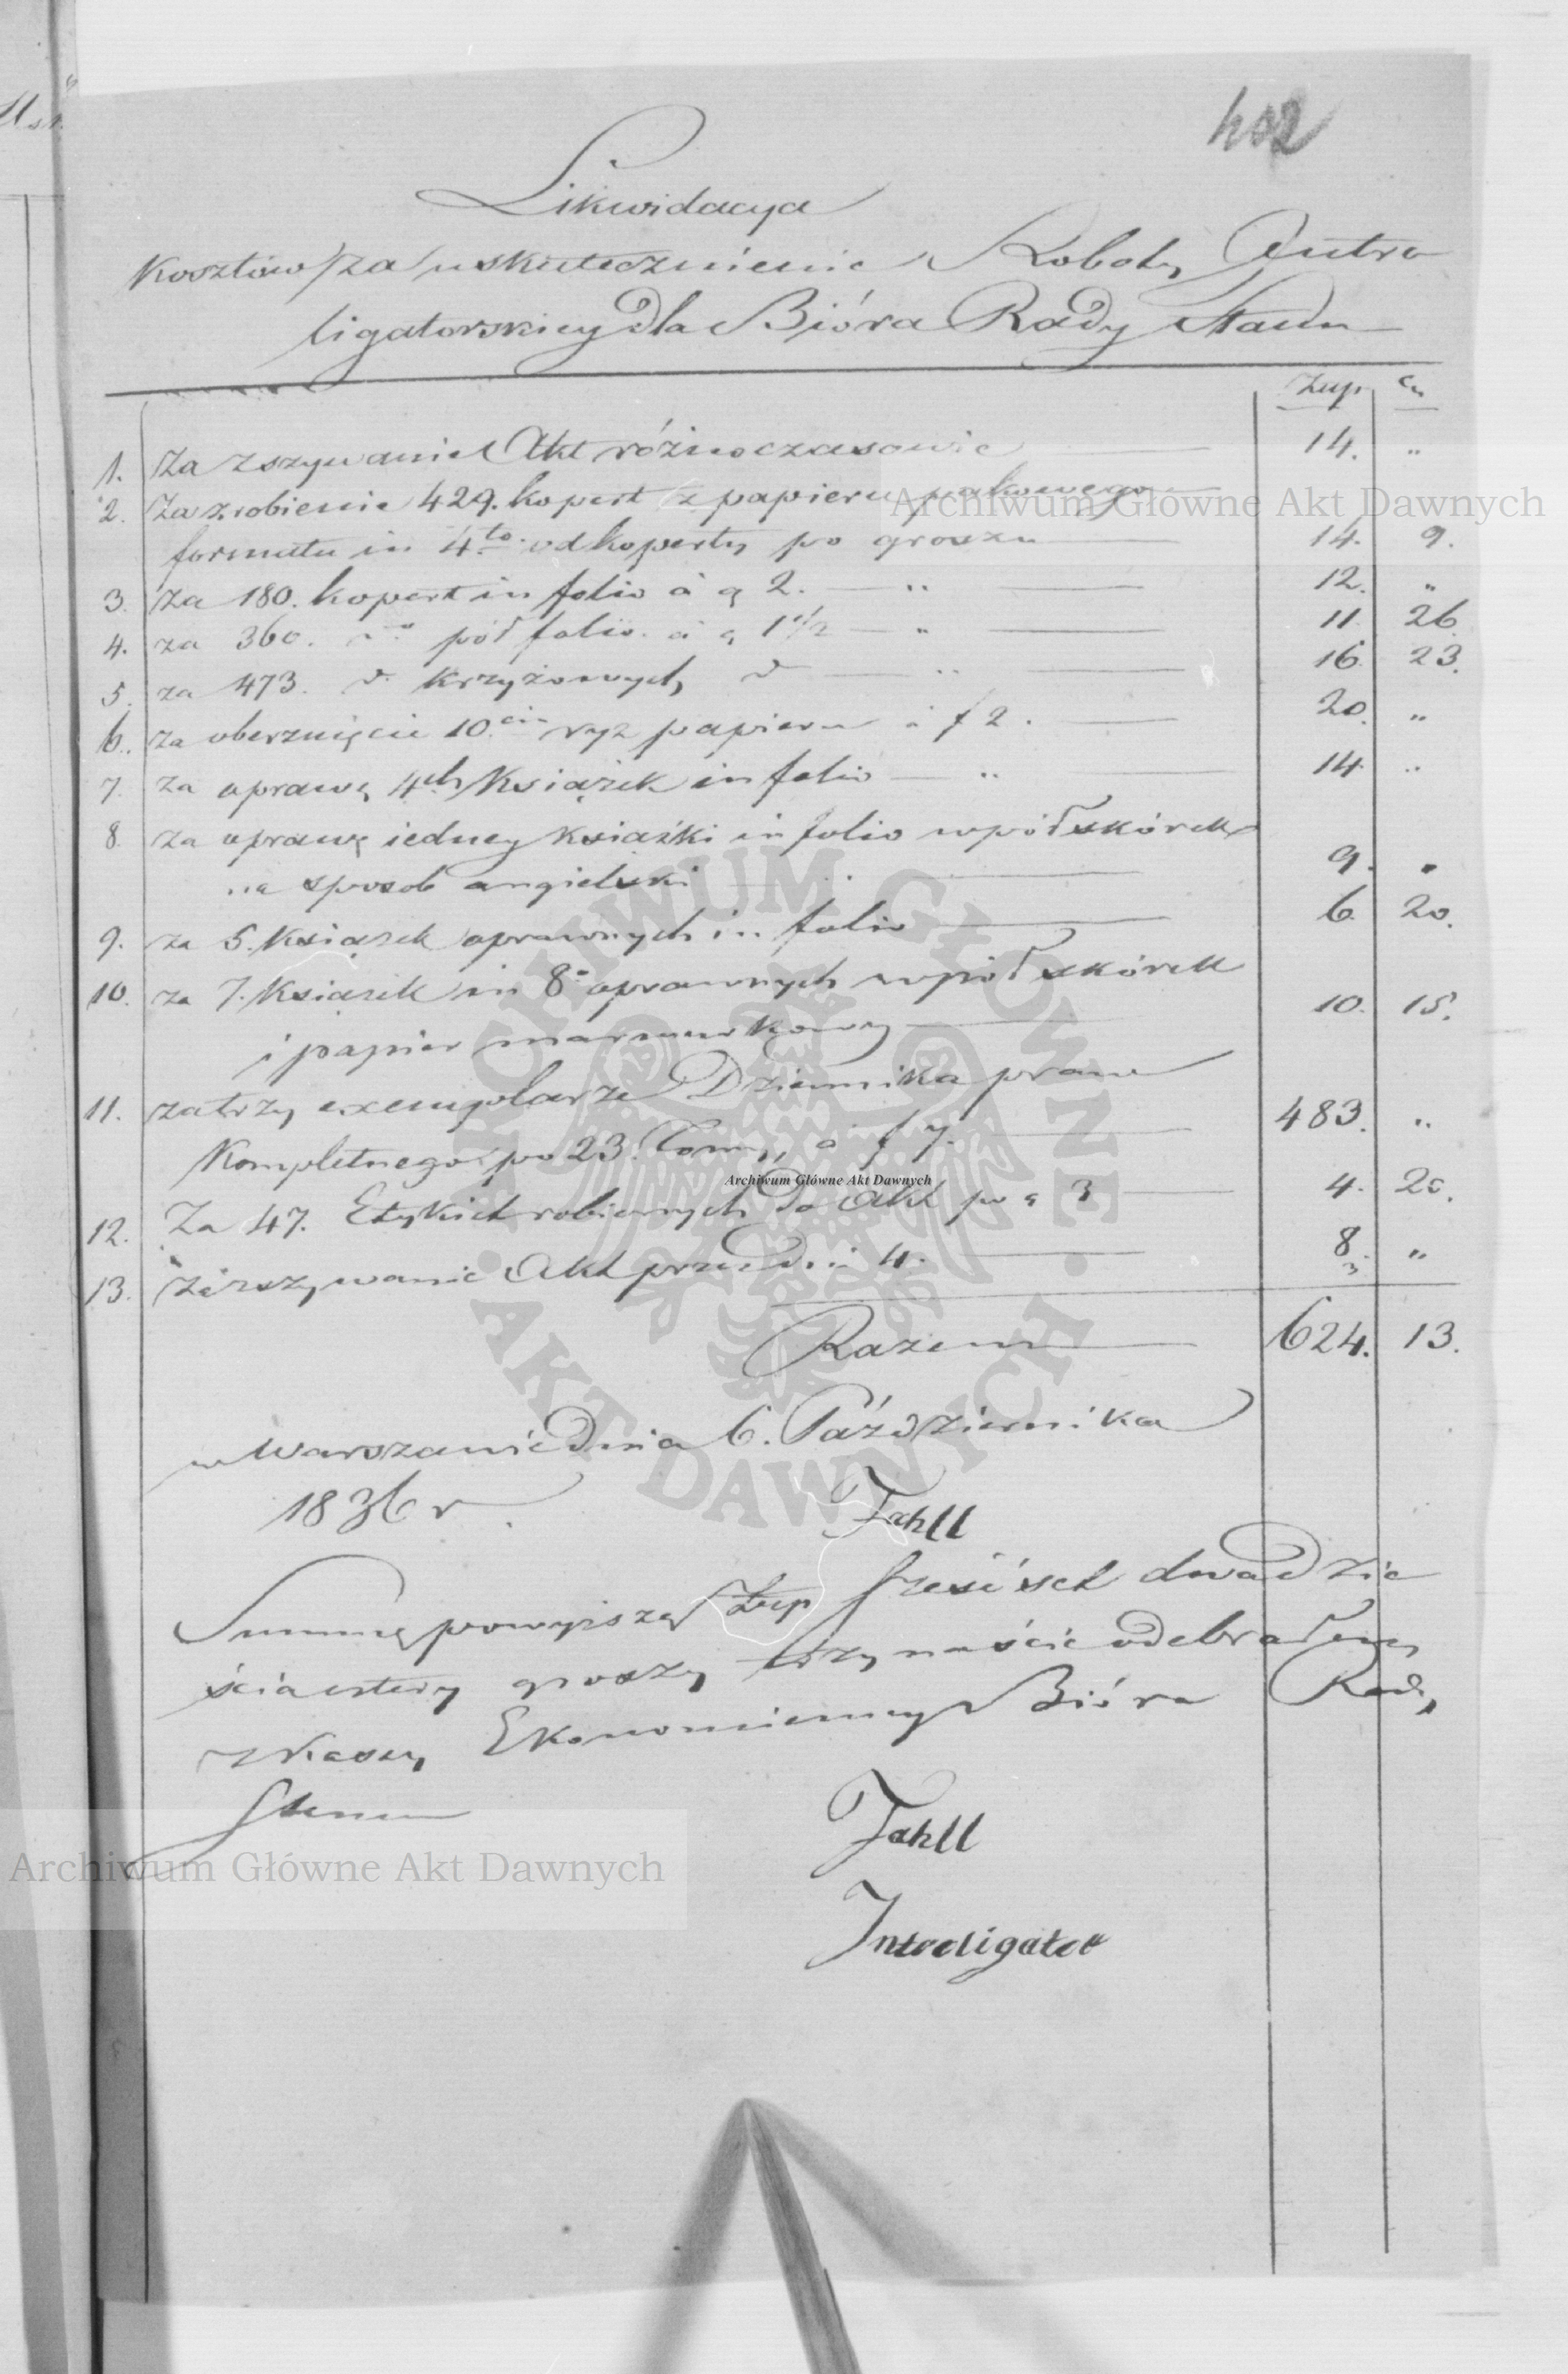 402
Likwidacya
Kosztów za uskutecznienie Roboty Intro
ligatorskiey dla Bióra Rady Stanu
Złp. gr
1. Za zszywanie Akt różnoczasowie 14. "
2. Za zrobienie 429. kopert z papieru pakowego
formatu in 4to od koperty po groszu 14. 9.
3. Za 180. kopert in folio à g 2. " 12. "
4. za 360. do pół folio. à g 1 1/2 " 11. 26
5. za 473. do krzyżowych do " 16. 23.
6. za oberznięcie 10.ciu ryz papieru à f 2. 20. "
7. za oprawę 4ch Książek in folio " 14. "
8. za oprawę iedney książki in folio wpółskórek
na sposob angielski 9. "
9. za 5. Książek oprawnych in folio 6. 20.
10. za 7. Książek in 8o oprawnych wpółskórek
i papier marmurkowy 10. 15.
11. za trzy exemplarze Dziennika praw
Kompletnego po 23. Tomy, à f 7. 483. "
12. Za 47. Etykiet robionych do Akt po g 3 4. 20.
13. za zszywanie Akt przez Dni 4. 8. "
Razem 624. 13.
w Warszawie Dnia 6. Października
1836 r.
Fahll
Summę powyższą Złp sześćset dwadzie
ścia cztery groszy trzynaście odebrałem
z Kassy Ekonomiczney Bióra Rady
Stanu
Fahll
Introligator
Archiwum Główne Akt Dawnych
Archiwum Główne Akt Dawnych
Archiwum Główne Akt Dawnych
ARCHIWUM GŁÓWNE AKT DAWNYCH